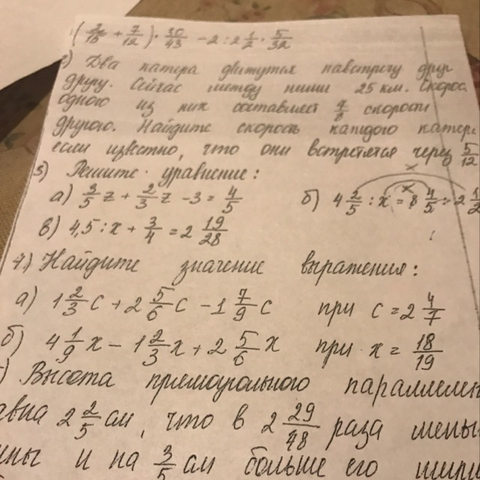 (2/15 + 7/12) · 30/43 − 2 : 2 1/2 · 5/32
) Два катера движутся навстречу друг
другу. Сейчас между ними 25 км. Скорос
одного из них составляет 7/8 скорости
другого. Найдите скорость каждого катер
если известно, что они встретятся через 5/12
3) Решите уравнение:
а) 3/5 z + 2/3 z − 3 = 4/5 б) 4 2/5 : x = 8 4/5 : 2 1/2
в) 4,5 : x + 3/4 = 2 19/28
4.) Найдите значение выражения:
а) 1 2/3 c + 2 5/6 c − 1 7/9 c при c = 2 4/7
б) 4 1/9 x − 1 2/3 x + 2 5/6 x при x = 18/19
) Высота прямоугольного параллелеп
авна 2 2/5 см, что в 2 29/48 раза мень
ины и на 3/5 см больше его шири